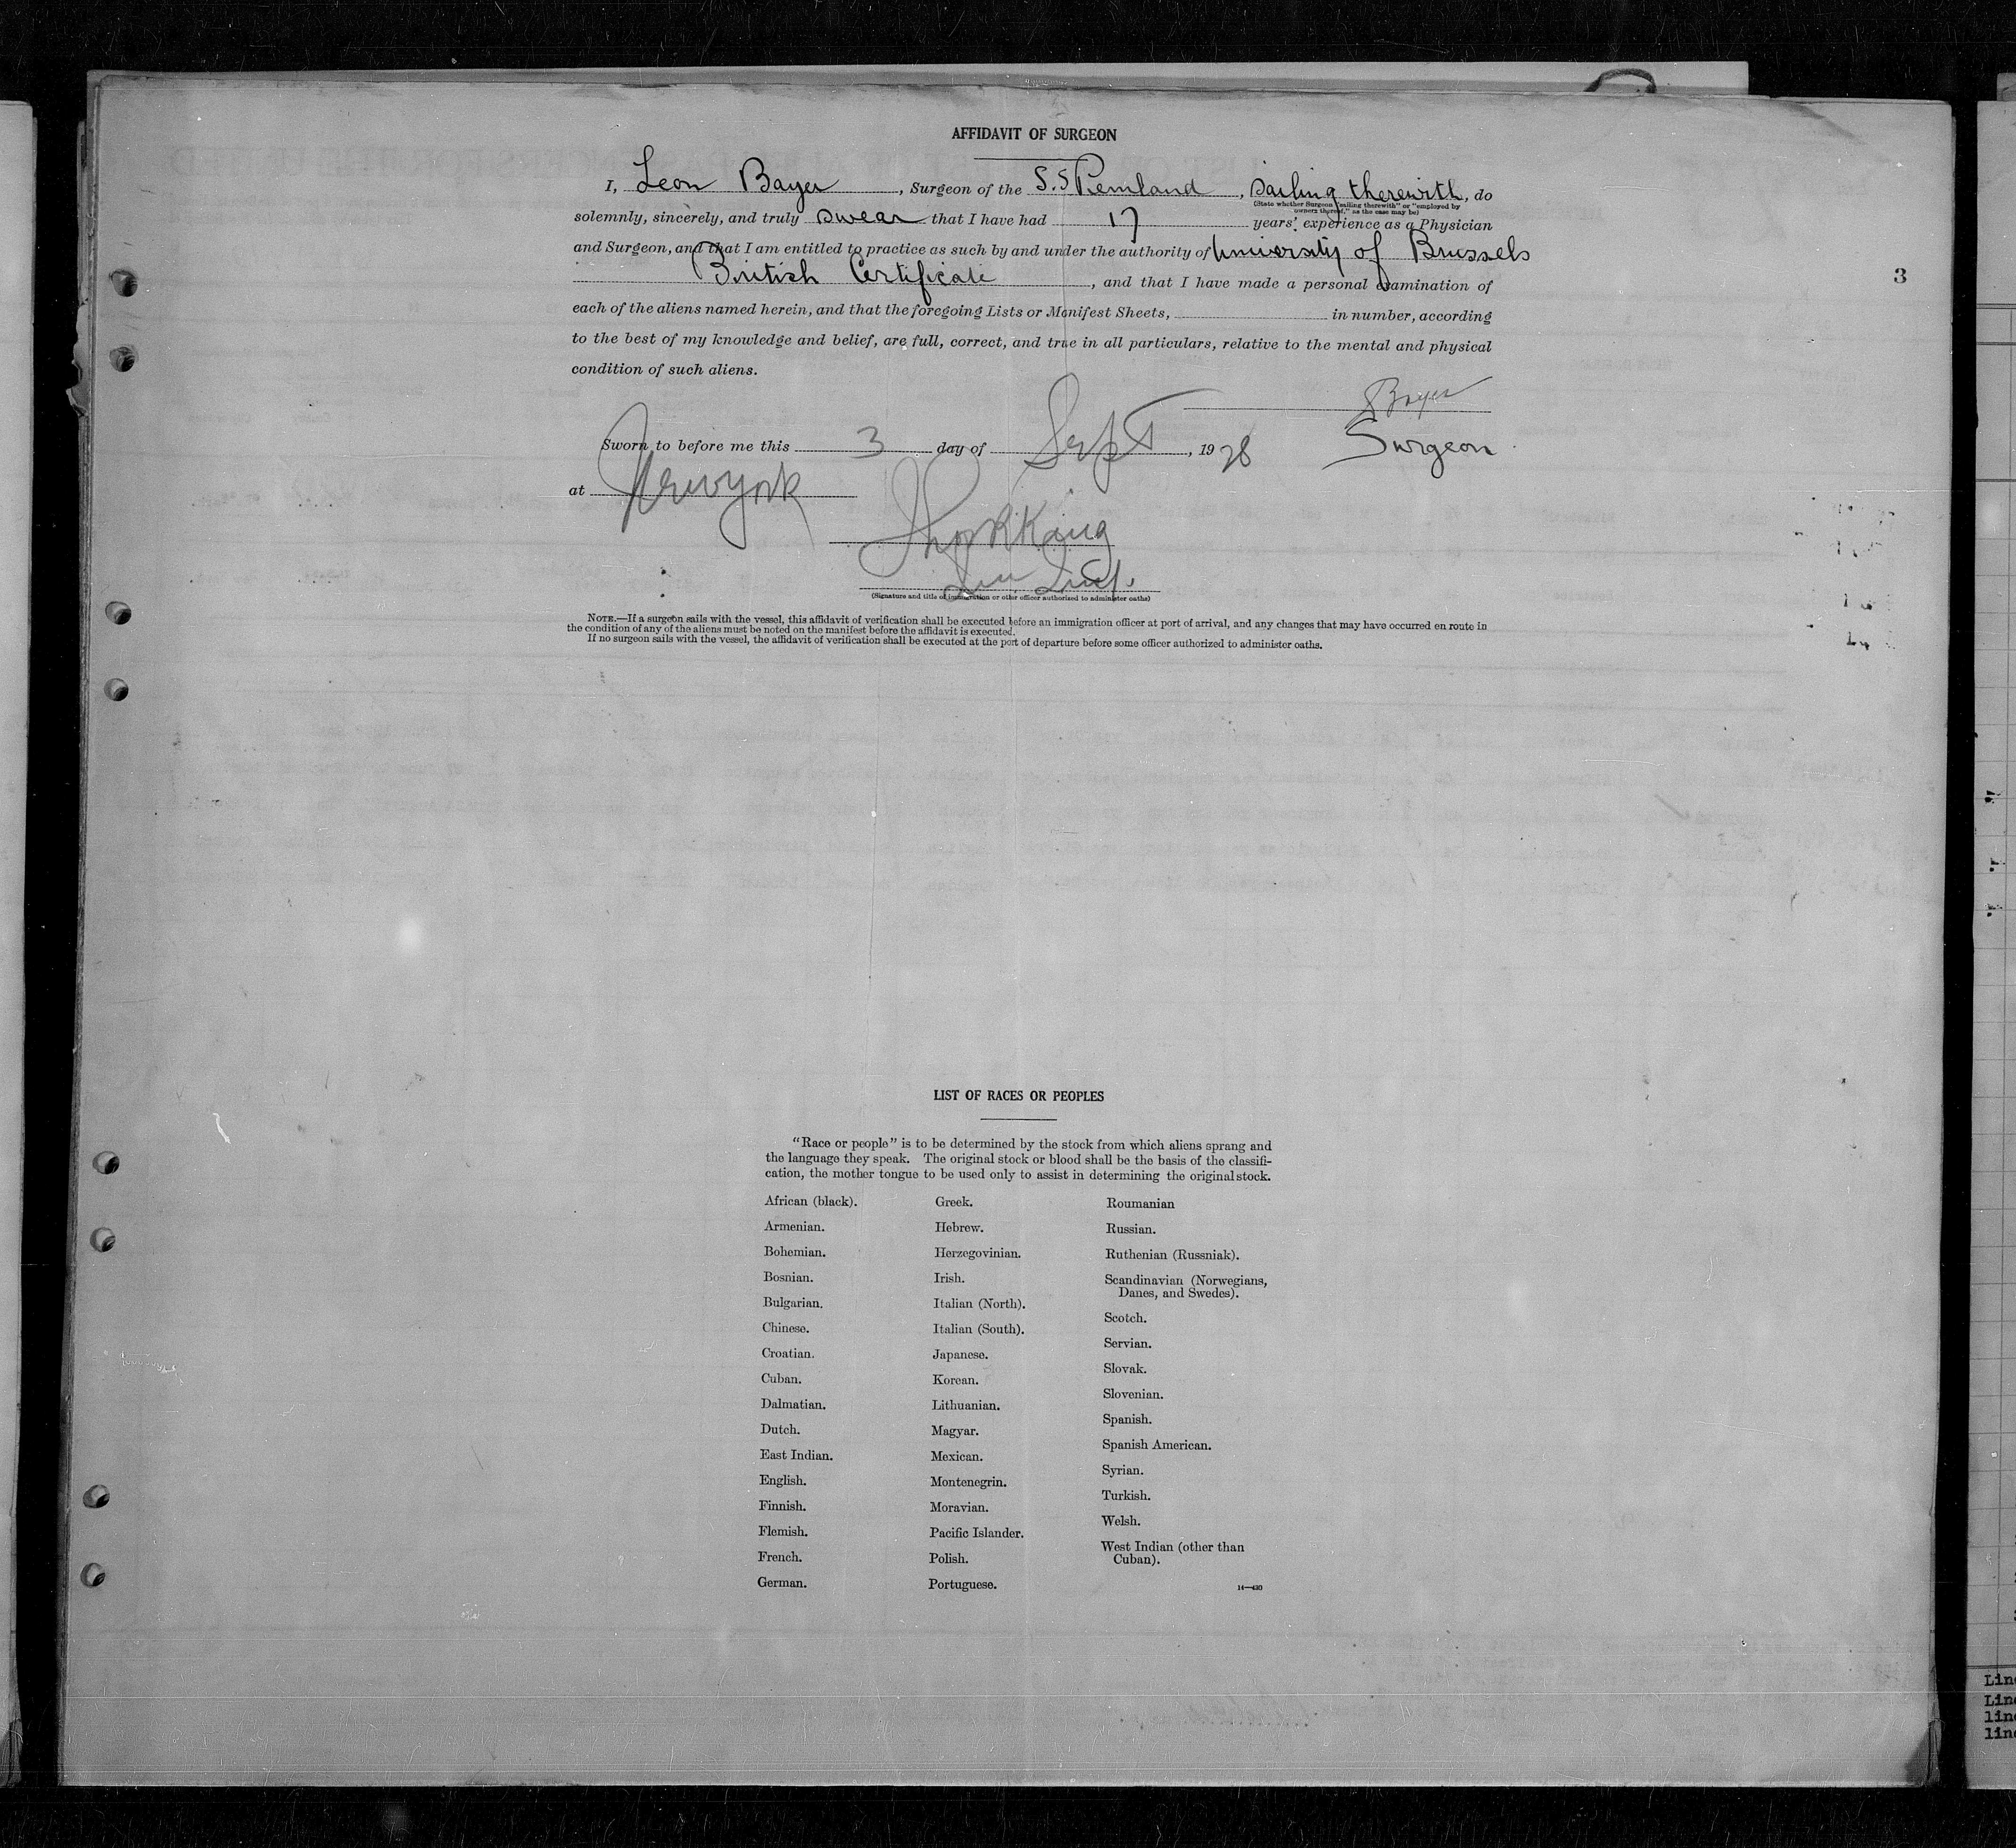 AFFIDAVIT OF SURGEON
I, Leon Bayer, Surgeon of the S.S. Pennland, sailing therewith, do
(State whether Surgeon "sailing therewith" or "employed by
owners thereof," as the case may be)
solemnly, sincerely, and truly swear that I have had 17 years' experience as a Physician
and Surgeon, and that I am entitled to practice as such by and under the authority of University of Brussels
British Certificate, and that I have made a personal examination of
each of the aliens named herein, and that the foregoing Lists or Manifest Sheets, in number, according
to the best of my knowledge and belief, are full, correct, and true in all particulars, relative to the mental and physical
condition of such aliens.
Bayer
Sworn to before me this 3 day of Sept, 1928 Surgeon
at New York
King
(Signature and title of immigration or other officer authorized to administer oaths)
NOTE.—If a surgeon sails with the vessel, this affidavit of verification shall be executed before an immigration officer at port of arrival, and any changes that may have occurred en route in
the condition of any of the aliens must be noted on the manifest before the affidavit is executed.
If no surgeon sails with the vessel, the affidavit of verification shall be executed at the port of departure before some officer authorized to administer oaths.
3
LIST OF RACES OR PEOPLES
"Race or people" is to be determined by the stock from which aliens sprang and
the language they speak. The original stock or blood shall be the basis of the classifi-
cation, the mother tongue to be used only to assist in determining the original stock.
African (black).
Armenian.
Bohemian.
Bosnian.
Bulgarian.
Chinese.
Croatian.
Cuban.
Dalmatian.
Dutch.
East Indian.
English.
Finnish.
Flemish.
French.
German.
Greek.
Hebrew.
Herzegovinian.
Irish.
Italian (North).
Italian (South).
Japanese.
Korean.
Lithuanian.
Magyar.
Mexican.
Montenegrin.
Moravian.
Pacific Islander.
Polish.
Portuguese.
Roumanian
Russian.
Ruthenian (Russniak).
Scandinavian (Norwegians,
Danes, and Swedes).
Scotch.
Servian.
Slovak.
Slovenian.
Spanish.
Spanish American.
Syrian.
Turkish.
Welsh.
West Indian (other than
Cuban).
14—430